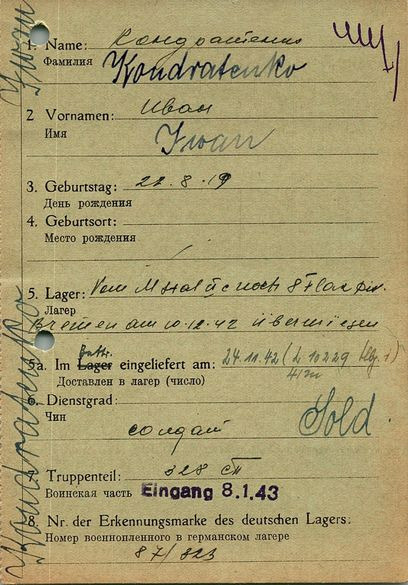 1. Name: Кондратенко
Фамилия Kondratenko
2 Vornamen: Иван
Имя Iwan
3. Geburtstag: 22-8-19
День рождения
4. Geburtsort:
Место рождения
5. Lager: Vom M Stal nach 8 Flak
Лагер
Bremen am 10.12.42 überwiesen
5a. Im Lager eingeliefert am: 24.11.42
Доставлен в лагер (число)
6. Dienstgrad:
Чин солдат Sold.
7. Truppenteil: 328 СП
Воинская часть Eingang 8.1.43
8. Nr. der Erkennungsmarke des deutschen Lagers:
Номер военнопленного в германском лагере
87/823
Kondratenko Iwan